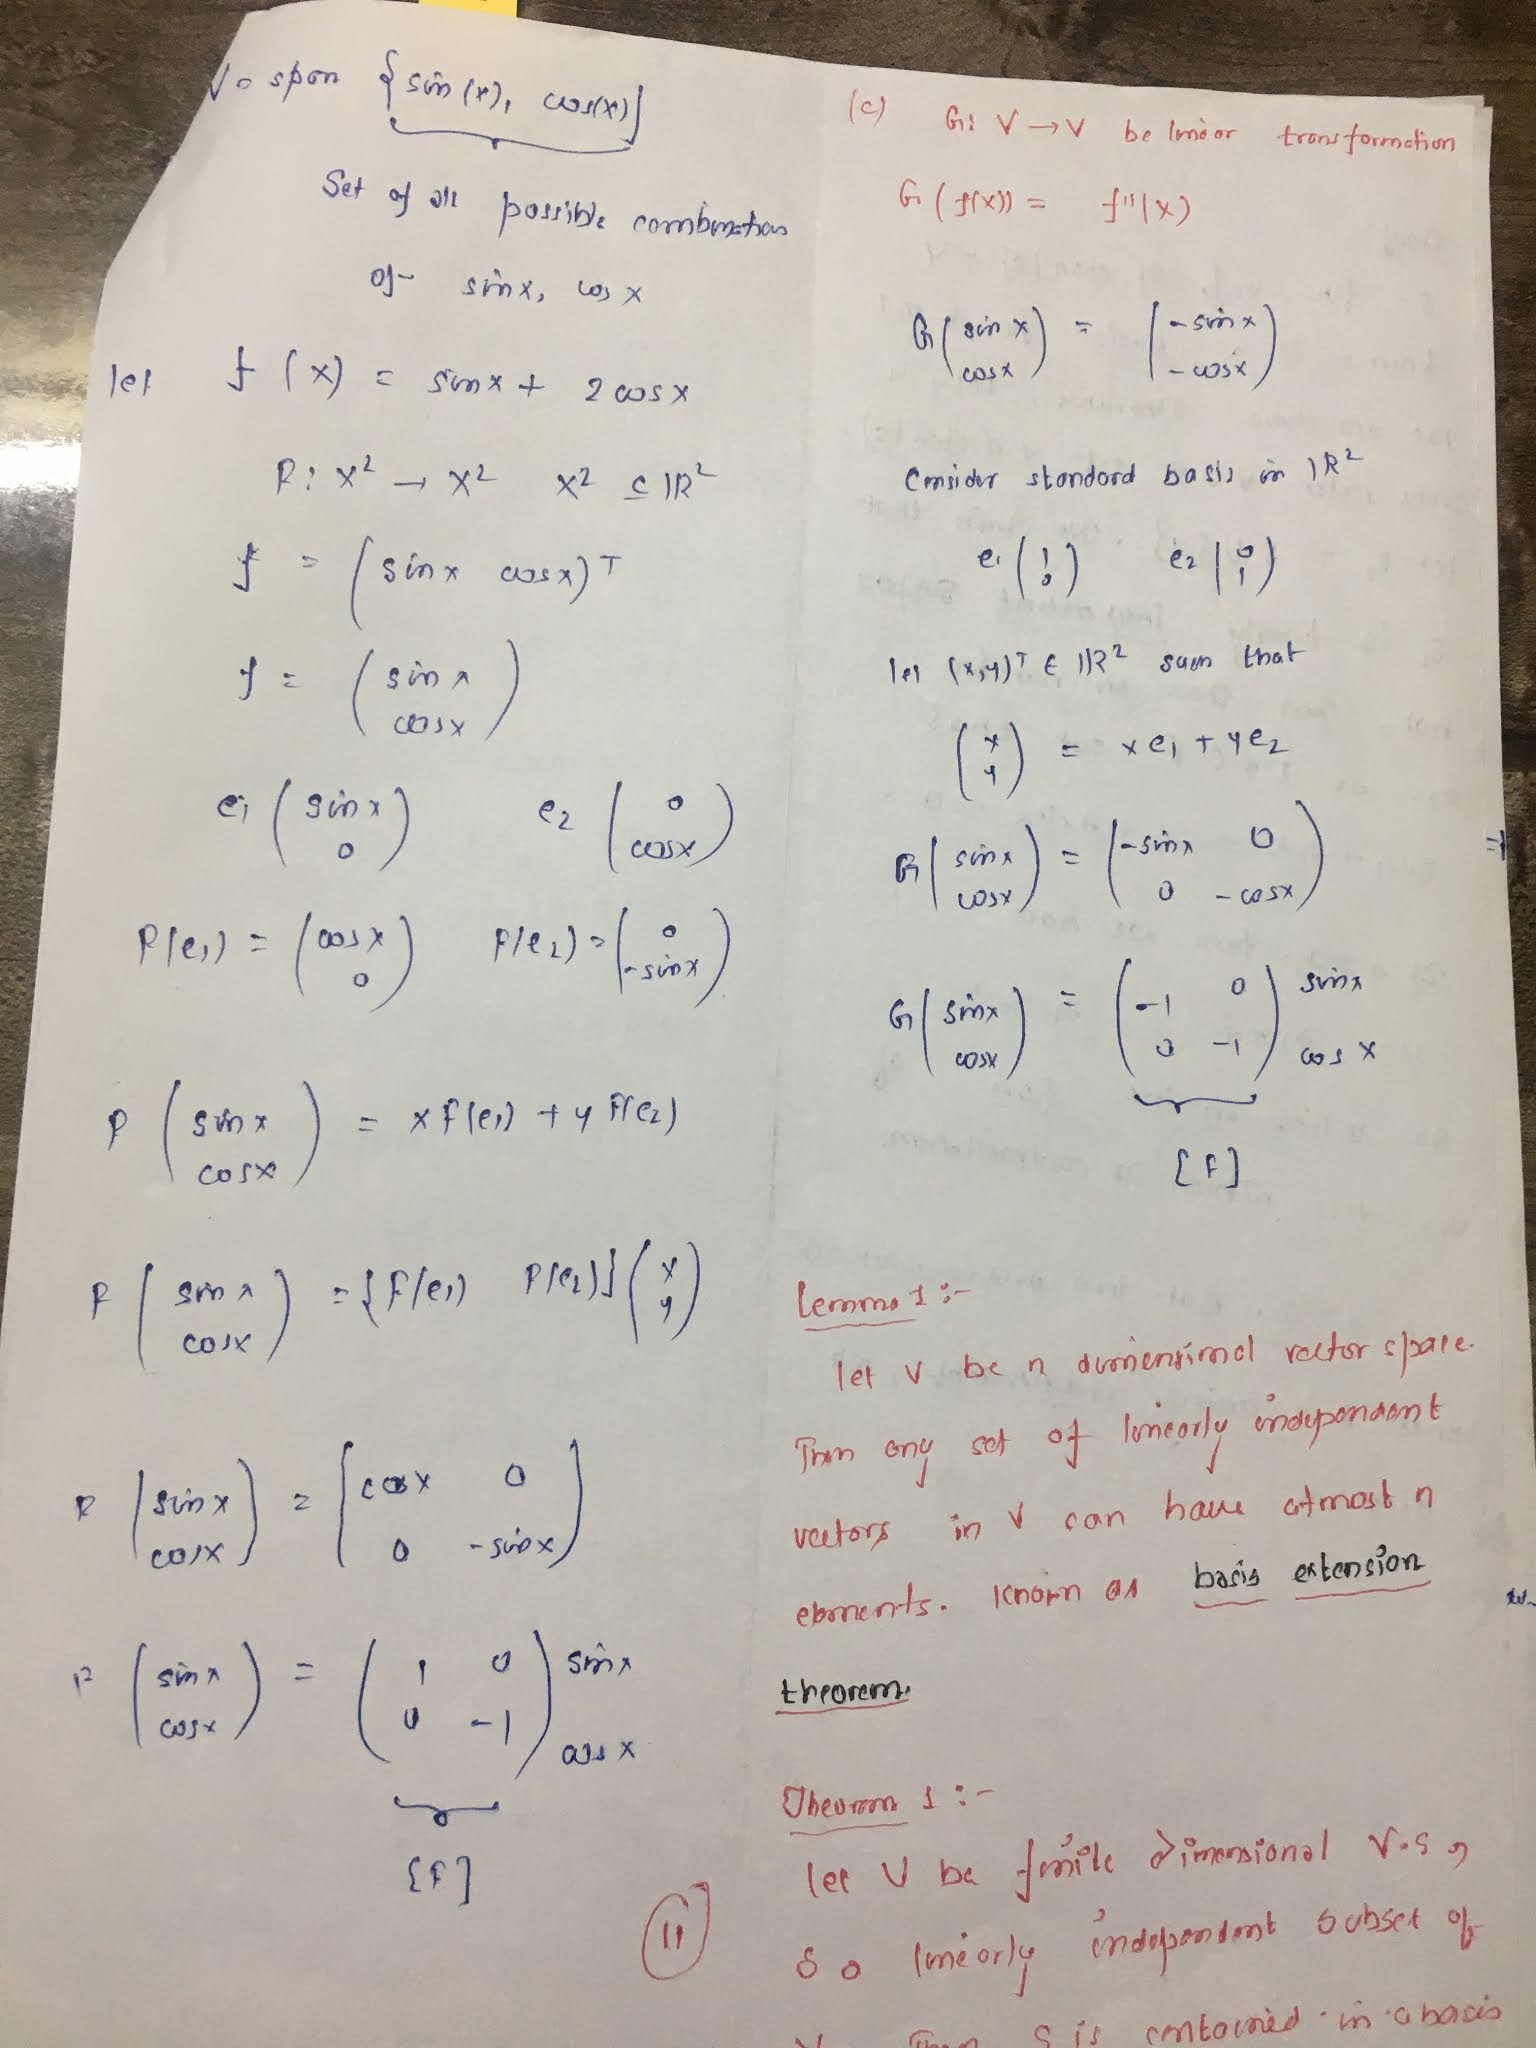 V = span {sin(x), cos(x)}
Set of all possible combinations
of sinx, cos x
let f(x) = sinx + 2 cosx
F: X² → X² X² ⊆ ℝ²
f = (sinx cosx)ᵀ
f = (sinx
cosx)
e₁ (sinx
0) e₂ (0
cosx)
F(e₁) = (cosx
0) F(e₂) = (0
-sinx)
F (sinx
cosx) = x F(e₁) + y F(e₂)
F (sinx
cosx) = {F(e₁) F(e₂)} (x
y)
F (sinx
cosx) = [cosx 0
0 -sinx]
F (sinx
cosx) = (1 0
0 -1) sinx
cosx
[F]
11
(c) G: V → V be linear transformation
G(f(x)) = f''(x)
G(sinx
cosx) = (-sinx
-cosx)
Consider standard basis in ℝ²
e₁ (1
0) e₂ (0
1)
let (x,y)ᵀ ∈ ℝ² such that
(x
y) = xe₁ + ye₂
G(sinx
cosx) = (-sinx 0
0 -cosx)
G(sinx
cosx) = (-1 0
0 -1) sinx
cos x
[F]
Lemma 1 :-
let V be n dimensional vector space.
Then any set of linearly independent
vectors in V can have atmost n
elements. Known as basis extension
theorem.
Theorem 1 :-
let V be finite dimensional V.S,
S a linearly independent subset of
V. Then S is contained in a basis